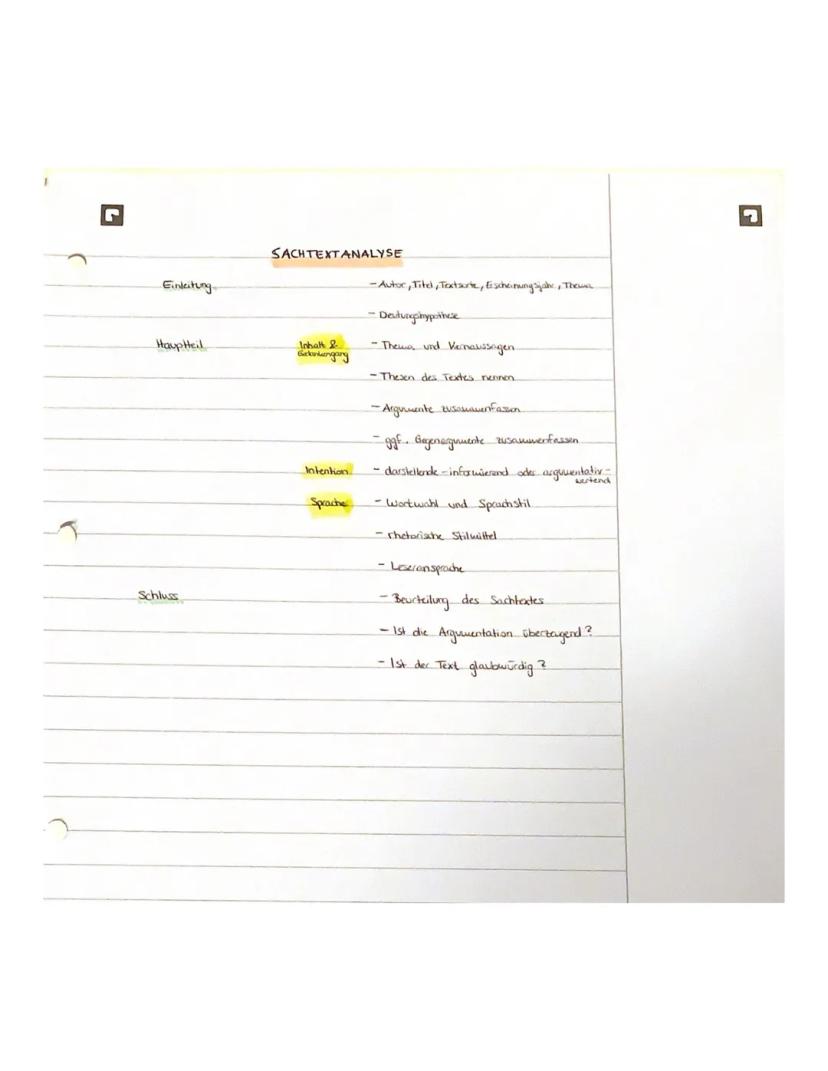 SACHTEXTANALYSE
Einleitung - Autor, Titel, Textsorte, Escheinungsjahr, Thema
- Deutungshypothese
Hauptteil Inhalt & - Thema und Kernaussagen
Gedankengang
- Thesen des Textes nennen
- Argumente zusammenfassen
- ggf. Gegenargumente zusammenfassen
Intention - darstellende-informierend oder argumentativ-
wertend
Sprache - Wortwahl und Sprachstil
- rhetorische Stilmittel
- Leseransprache
Schluss - Beurteilung des Sachtextes
- Ist die Argumentation überzeugend?
- Ist der Text glaubwürdig?